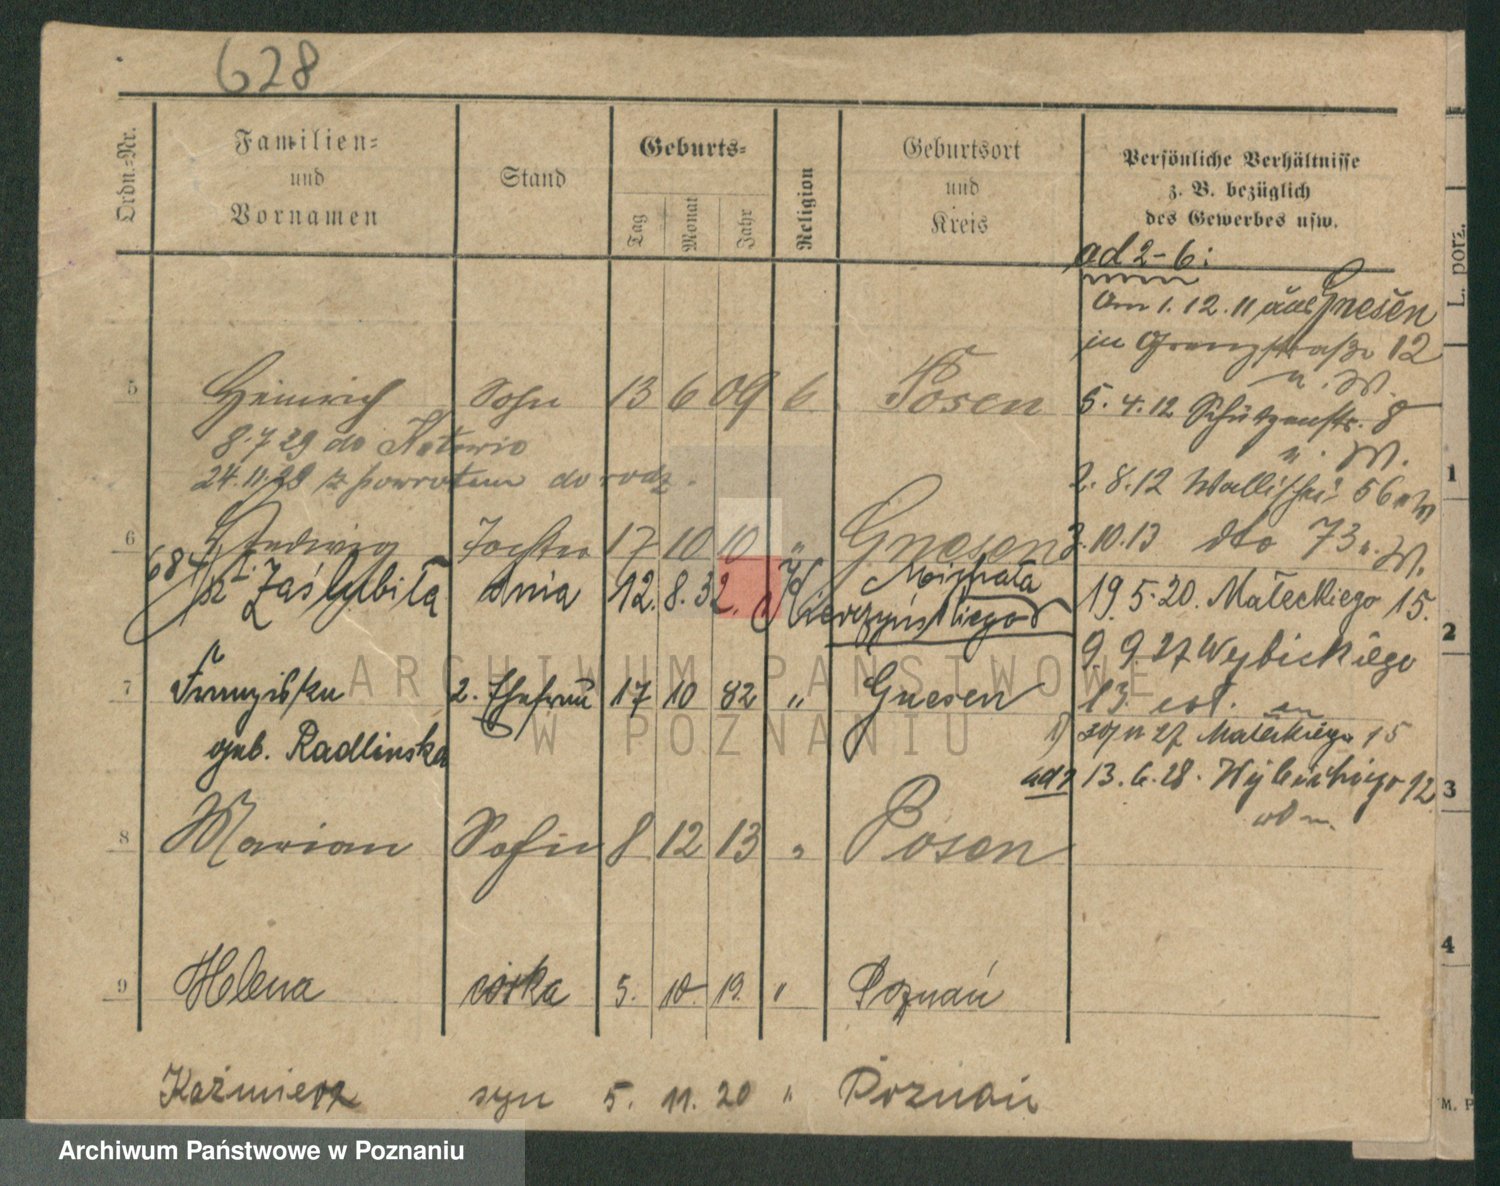 628
Ordn.-Nr.
Familien-
und
Vornamen
Stand
Geburts-
Tag
Monat
Jahr
Religion
Geburtsort
und
Kreis
Persönliche Verhältnisse
z. B. bezüglich
des Gewerbes usw.
ad 2-6:
Am 1.12.11 aus Gnesen
in Grenzstraße 12
u. W.
5 Heinrich Sohn 13 6 09 Posen
5.4.12 Schützenstr. 8
8.7.29 do
u. W.
24.11. z powrotem do rodz.
2.8.12 Wallischei 56 u W
6 Hedwig Tochter 17 10 10 " Gnesen
3.10.13 dto 73 u. W.
684/ Zaślubiła dnia 12. 8. 32. Michała
Nierzyńskiego
19.5.20. Małeckiego 15.
9.9.27 Wybickiego
7 Franziska 2. Ehefrau 17 10 82 " Gnesen
13.
geb. Radlinska
27 Małeckiego 15
13.6.28. Wybickiego 12
8 Marian Sohn 8 12 13 " Posen
9 Helena córka 5. 10. 19. " Poznań
Kaźmierz syn 5. 11. 20 " Poznań
L. porz.
1
2
3
4
M. P
ARCHIWUM PAŃSTWOWE
W POZNANIU
Archiwum Państwowe w Poznaniu